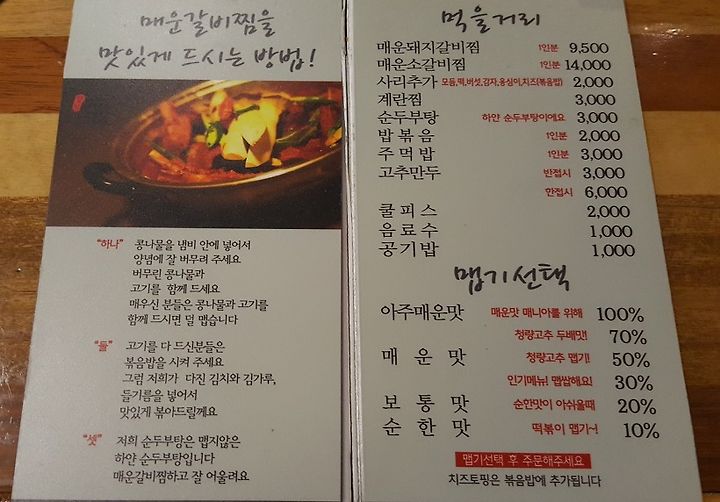 매운갈비찜을
맛있게 드시는 방법!
"하나" 콩나물을 냄비 안에 넣어서
양념에 잘 버무려 주세요
버무린 콩나물과
고기를 함께 드세요
매우신 분들은 콩나물과 고기를
함께 드시면 덜 맵습니다
"둘" 고기를 다 드신분들은
볶음밥을 시켜 주세요
그럼 저희가 다진 김치와 김가루,
들기름을 넣어서
맛있게 볶아드릴께요
"셋" 저희 순두부탕은 맵지않은
하얀 순두부탕입니다
매운갈비찜하고 잘 어울려요
먹을거리
매운돼지갈비찜 1인분 9,500
매운소갈비찜 1인분 14,000
사리추가 모듬,떡,버섯,감자,옹심이,치즈(볶음밥) 2,000
계란찜 3,000
순두부탕 하얀 순두부탕이에요 3,000
밥볶음 1인분 2,000
주먹밥 1인분 3,000
고추만두 반접시 3,000
한접시 6,000
쿨피스 2,000
음료수 1,000
공기밥 1,000
맵기선택
아주매운맛 매운맛 매니아를 위해 100%
청량고추 두배맷! 70%
매운맛 청량고추 맵기! 50%
인기메뉴! 맵쌉해요! 30%
보통맛 순한맛이 아쉬울때 20%
순한맛 떡볶이 맵기~! 10%
맵기선택 후 주문해주세요
치즈토핑은 볶음밥에 추가됩니다